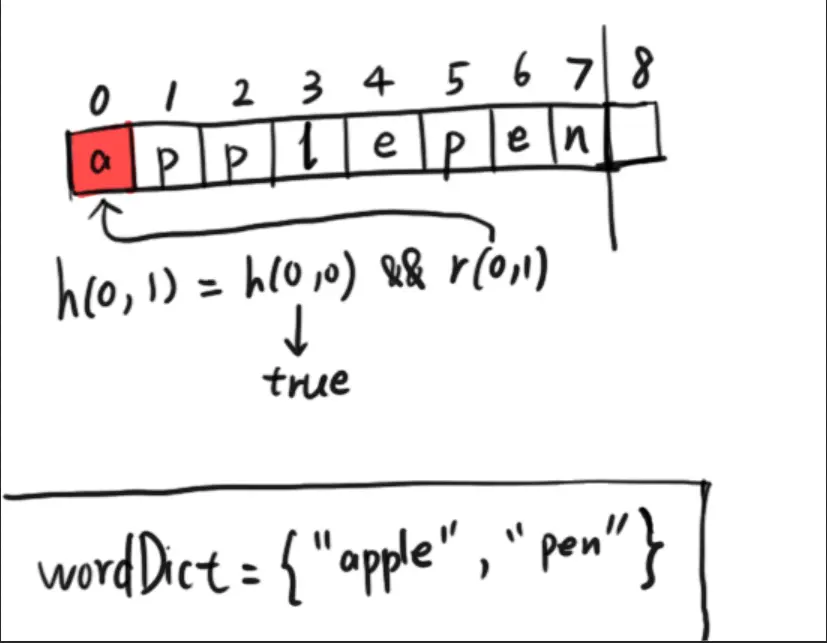 0 1 2 3 4 5 6 7 8
a p p l e p e n
h(0,1) = h(0,0) && r(0,1)
true
wordDict = {"apple", "pen"}